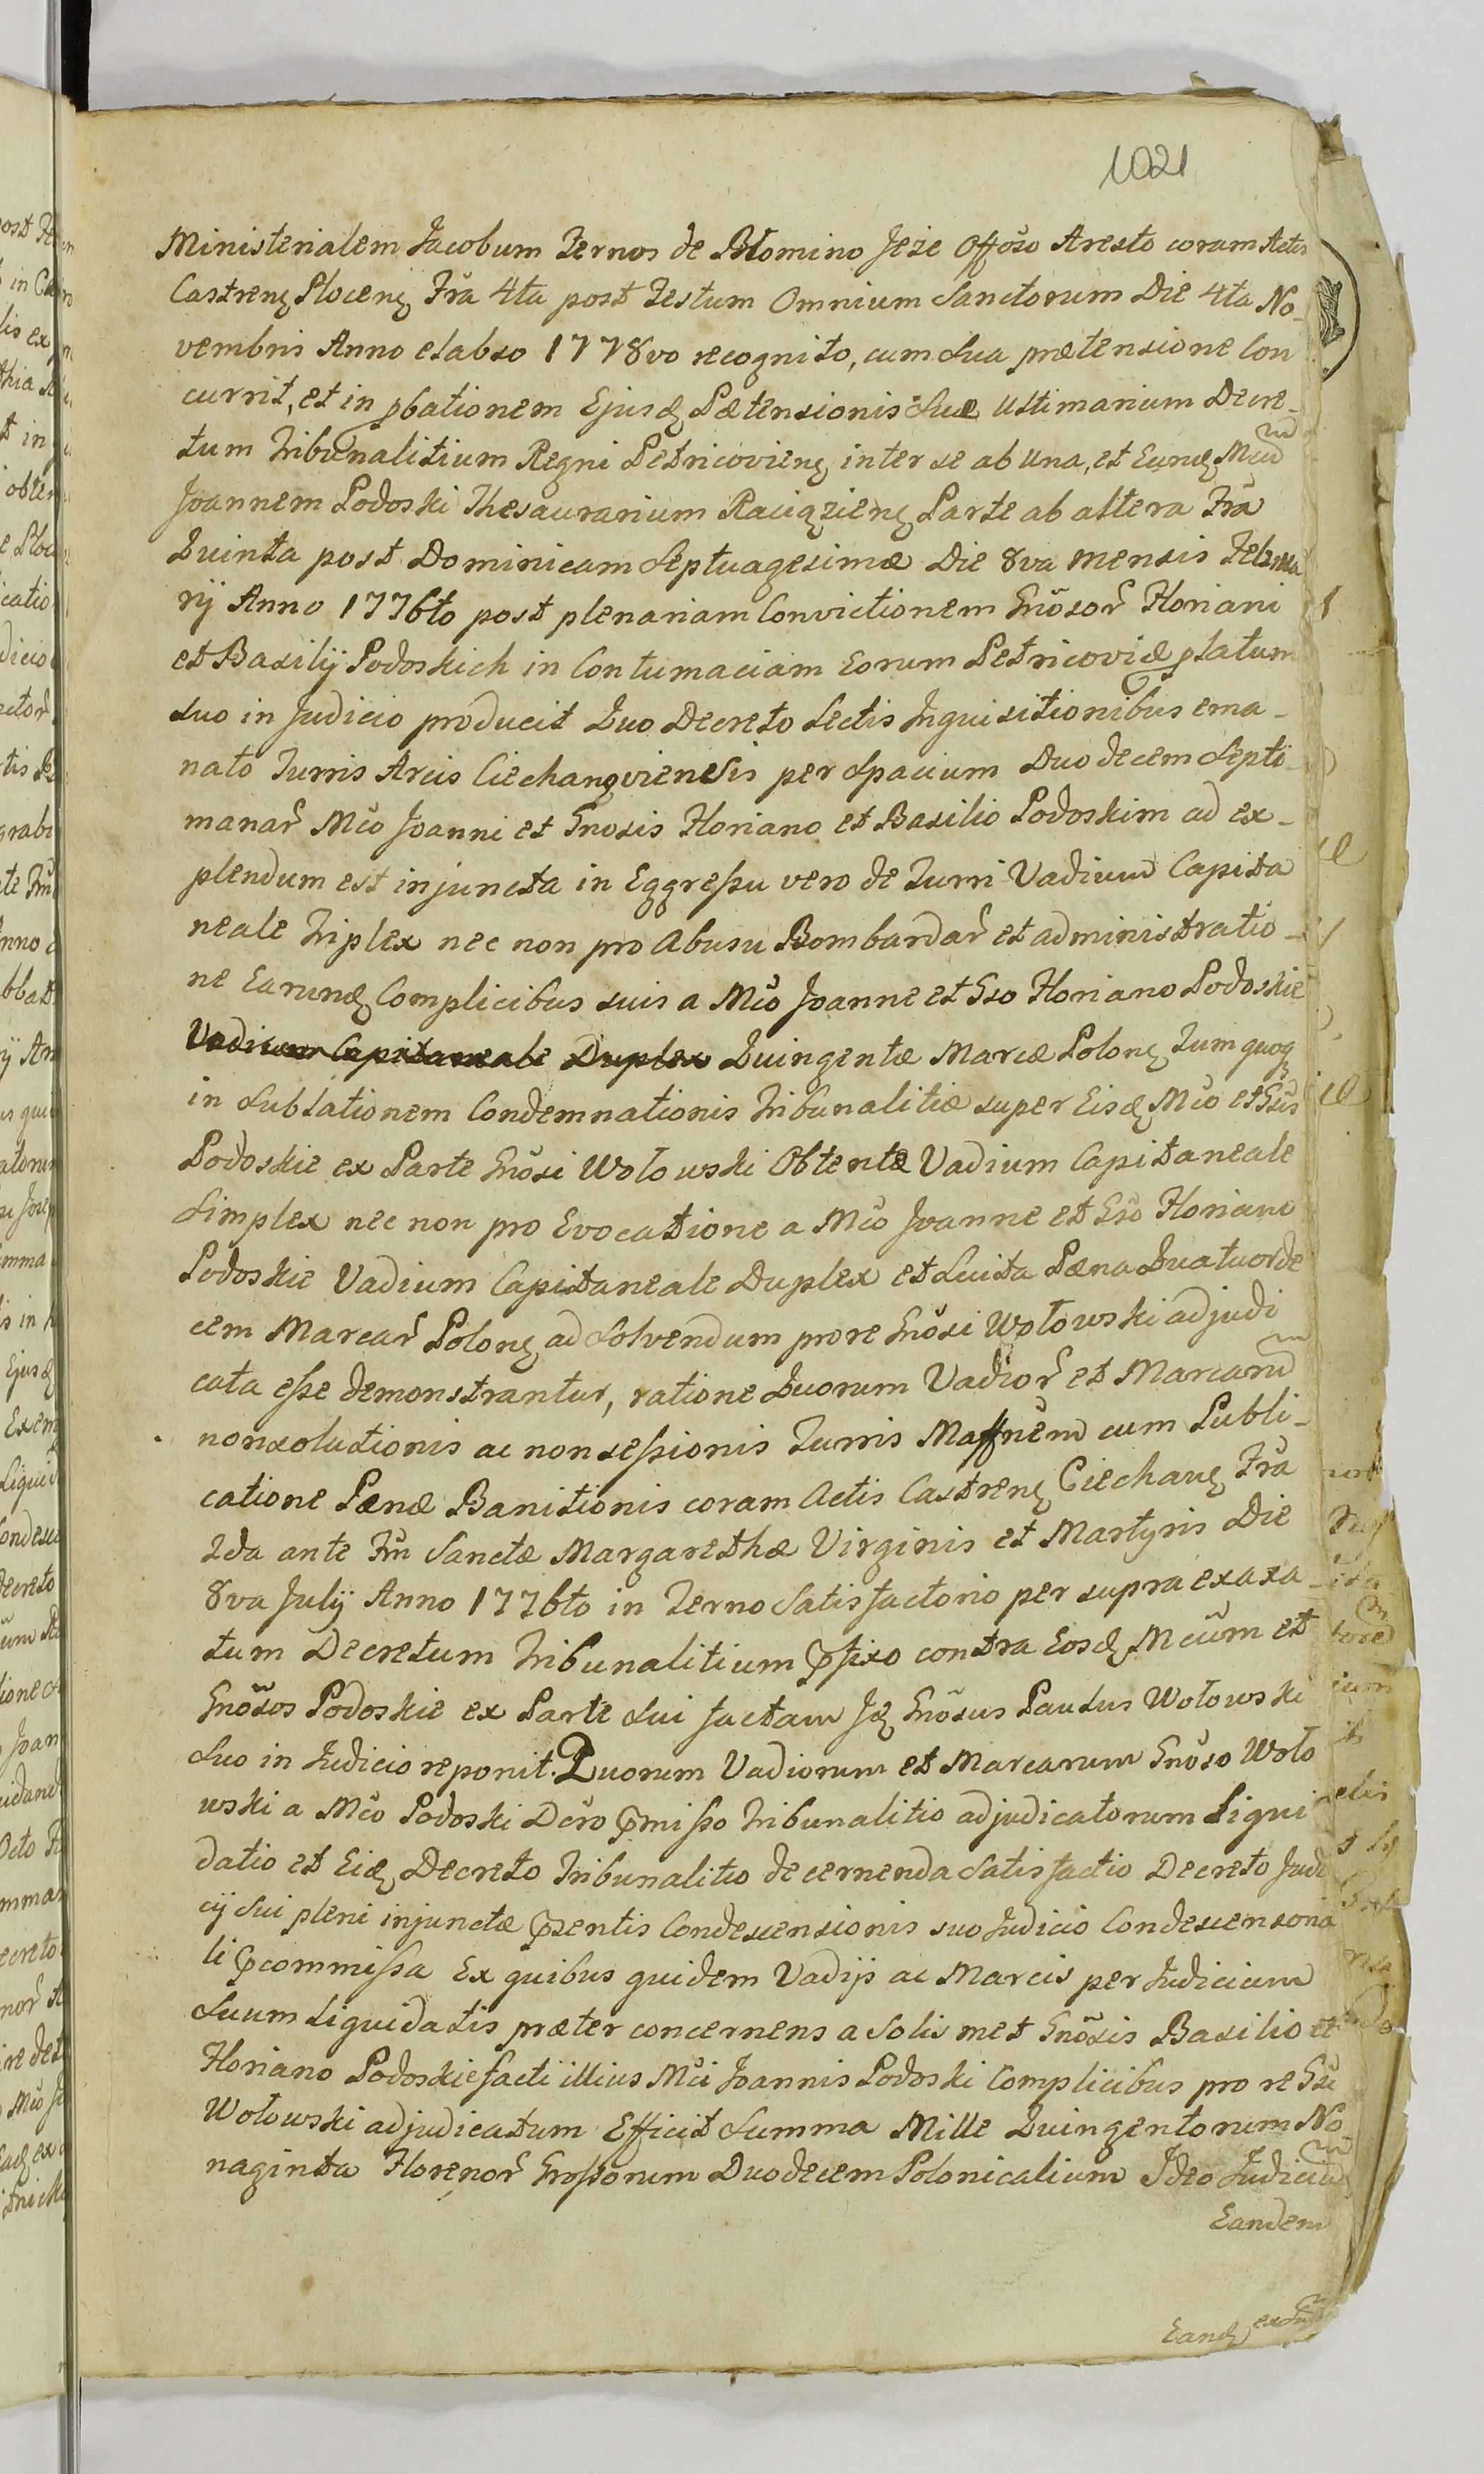 1021
Ministerialem Jacobum Ternos de Blomino Jeże Offoso Aresto coram Actis
Castren Plocen Fra 4ta post Festum Omnium Sanctorum Die 4ta No-
vembris Anno elabso 1778vo recognito, cum Sua prætensione Con
currit, et in pbationem Ejusd Pætensionis Suæ Ultimarium Decre-
tum Tribunalitium Regni Petricovien inter se ab Una, et Eund Mcum
Joannem Podoski Thesaurarium Raciązien Parte ab altera Fra
Quinta post Dominicam Septuagesimæ Die 8va mensis Februa
rij Anno 1776to post plenariam Convictionem Gnosor Floriani
et Basilij Podoskich in Contumaciam Eorum Petricoviæ platum
suo in Judicio producit Quo Decreto Lectis Inquisitionibus ema-
nato Turris Arcis Ciechanovienesis per Spacium Duodecem Septi-
manar Mco Joanni et Gnosis Floriano et Basilio Podoskim ad ex-
plendum est injuncta in Eggressu vero de Turri Vadium Capita
neale Triplex nec non pro Abusu Bombardar et administratio-
ne Earund Complicibus suis a Mco Joanne et Gso Floriano Podoskie
Vadium Capitaneale Duplex Quingentæ Marcæ Polon Tum quoq
in Sublationem Condemnationis Tribunalitiæ super Eisd Mco et Gsis
Podoskie ex Parte Gnosi Wołowski Obtentæ Vadium Capitaneale
Simplex nec non pro Evocatione a Mco Joanne et Gso Floriano
Podoskie Vadium Capitaneale Duplex et Luita Pæna Quatuorde
cem Marcar Polon ad Solvendum pro re Gnosi Wołowski adjudi
cata esse demonstrantur, ratione Quorum Vadior et Marcarum
nonsolutionis ac non sessionis Turris Maffnem cum Publi-
catione Pænæ Banitionis coram Actis Castren Ciechan Fra
2da ante Fm Sanctæ Margarethæ Virginis et Martyris Die
8va Julij Anno 1776to in Terno Satisfactorio per supra exaxa
tum Decretum Tribunalitium pfixo contra Eosd Mcum et
Gnosos Podoskie ex Parte Sui factam Id Gnosus Paulus Wołowski
Suo in Judicio reponit. Quorum Vadiorum et Marcarum Gnoso Woło
wski a Mco Podoski Dcro pmisso Tribunalitio adjudicatorum Liqui
datio et Eid Decreto Tribunalitio decernenda Satisfactio Decreto Judi
cij Sui pleni injunctæ psentis Condescensionis suo Judicio Condescensona
li pcommissa Ex quibus quidem Vadijs ac Marcis per Judicium
Suum Liquidatis præter concernens a Solis met Gnosis Basilio et
Floriano Podoskie facti illius Mci Joannis Podoski Complicibus pro re Gsi
Wołowski adjudicatum Efficit Summa Mille Quingentorum No
naginta Florenor Grossorum Duodecem Polonicalium Ideo Judicium
Eandem
Eand